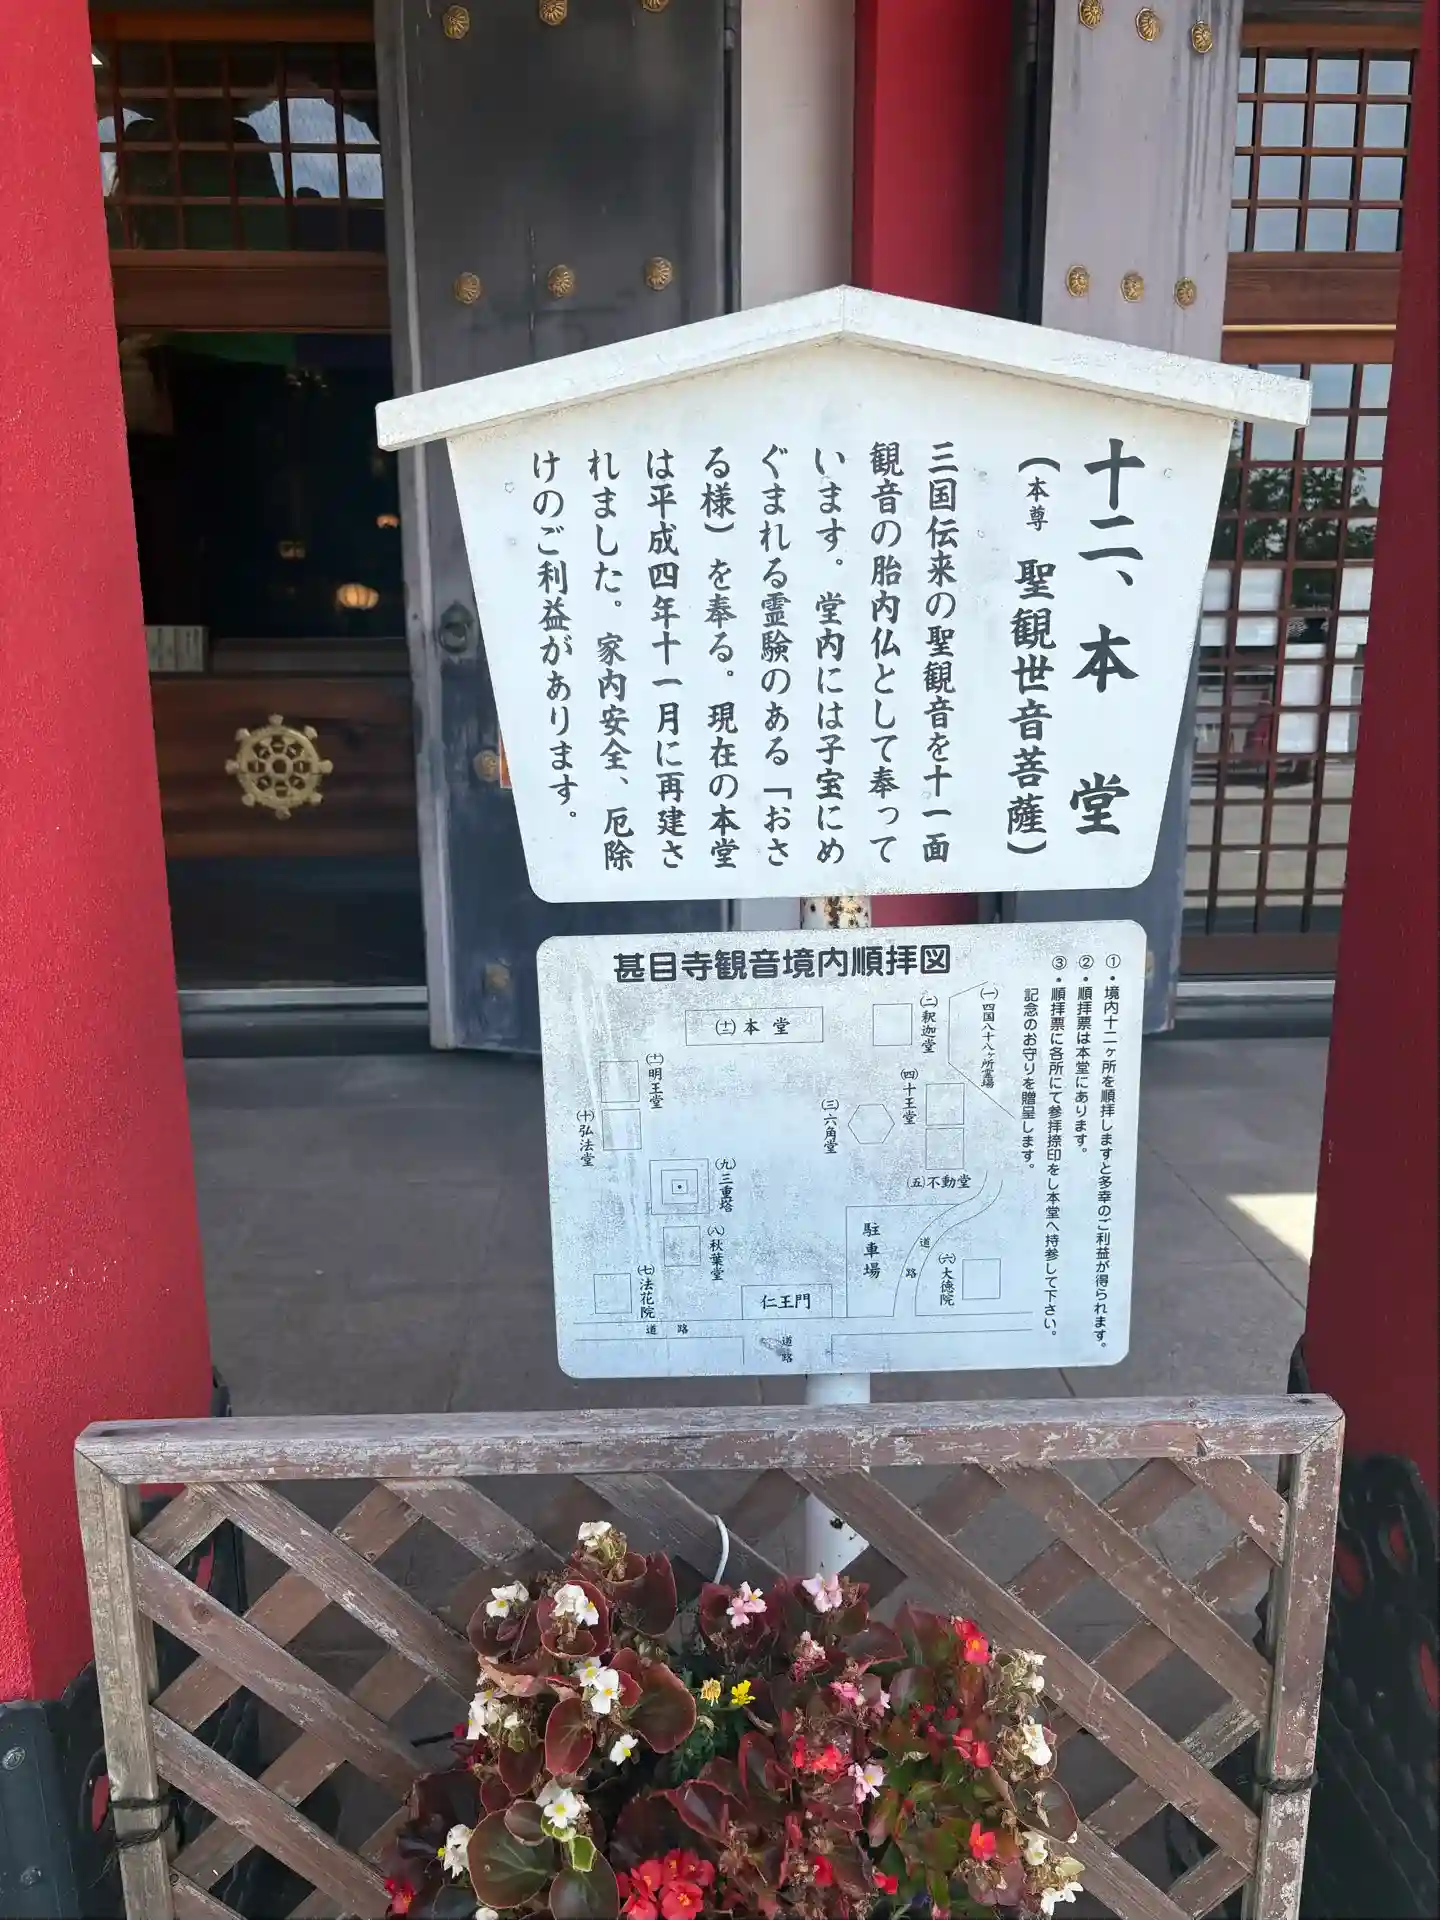 十二、本 堂
（本尊 聖観世音菩薩）
三国伝来の聖観音を十一面
観音の胎内仏として奉って
います。堂内には子宝にめ
ぐまれる霊験のある「おさ
る様）を奉る。現在の本堂
は平成四年十一月に再建さ
れました。家内安全、厄除
けのご利益があります。
甚目寺観音境内順拝図
①・境内十二ヶ所を順拝しますと多幸のご利益が得られます。
②・順拝票は本堂にあります。
③・順拝票に各所にて参拝捺印をし本堂へ持参して下さい。
記念のお守りを贈呈します。
㈠四国八十八ヶ所霊場
㈡釈迦堂
㈢六角堂
㈣十王堂
㈤不動堂
㈥大徳院
㈦法花院
㈧秋葉堂
㈨三重塔
㈩弘法堂
(十一)明王堂
(十二)本 堂
駐車場
道路
仁王門
道路
道路